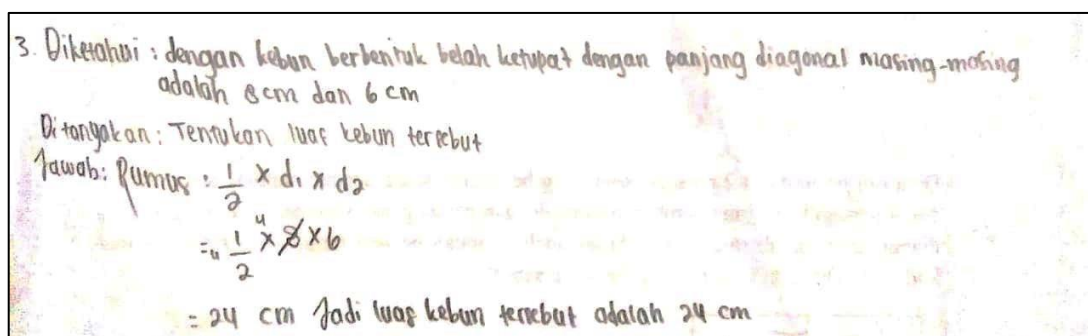 3. Diketahui : dengan kebun berbentuk belah ketupat dengan panjang diagonal masing-masing
adalah 8 cm dan 6 cm
Ditanyakan : Tentukan luas kebun tersebut
Jawab: Rumus : 1/2 x d1 x d2
= 1/2 x 8 x 6
4
= 24 cm Jadi luas kebun tersebut adalah 24 cm